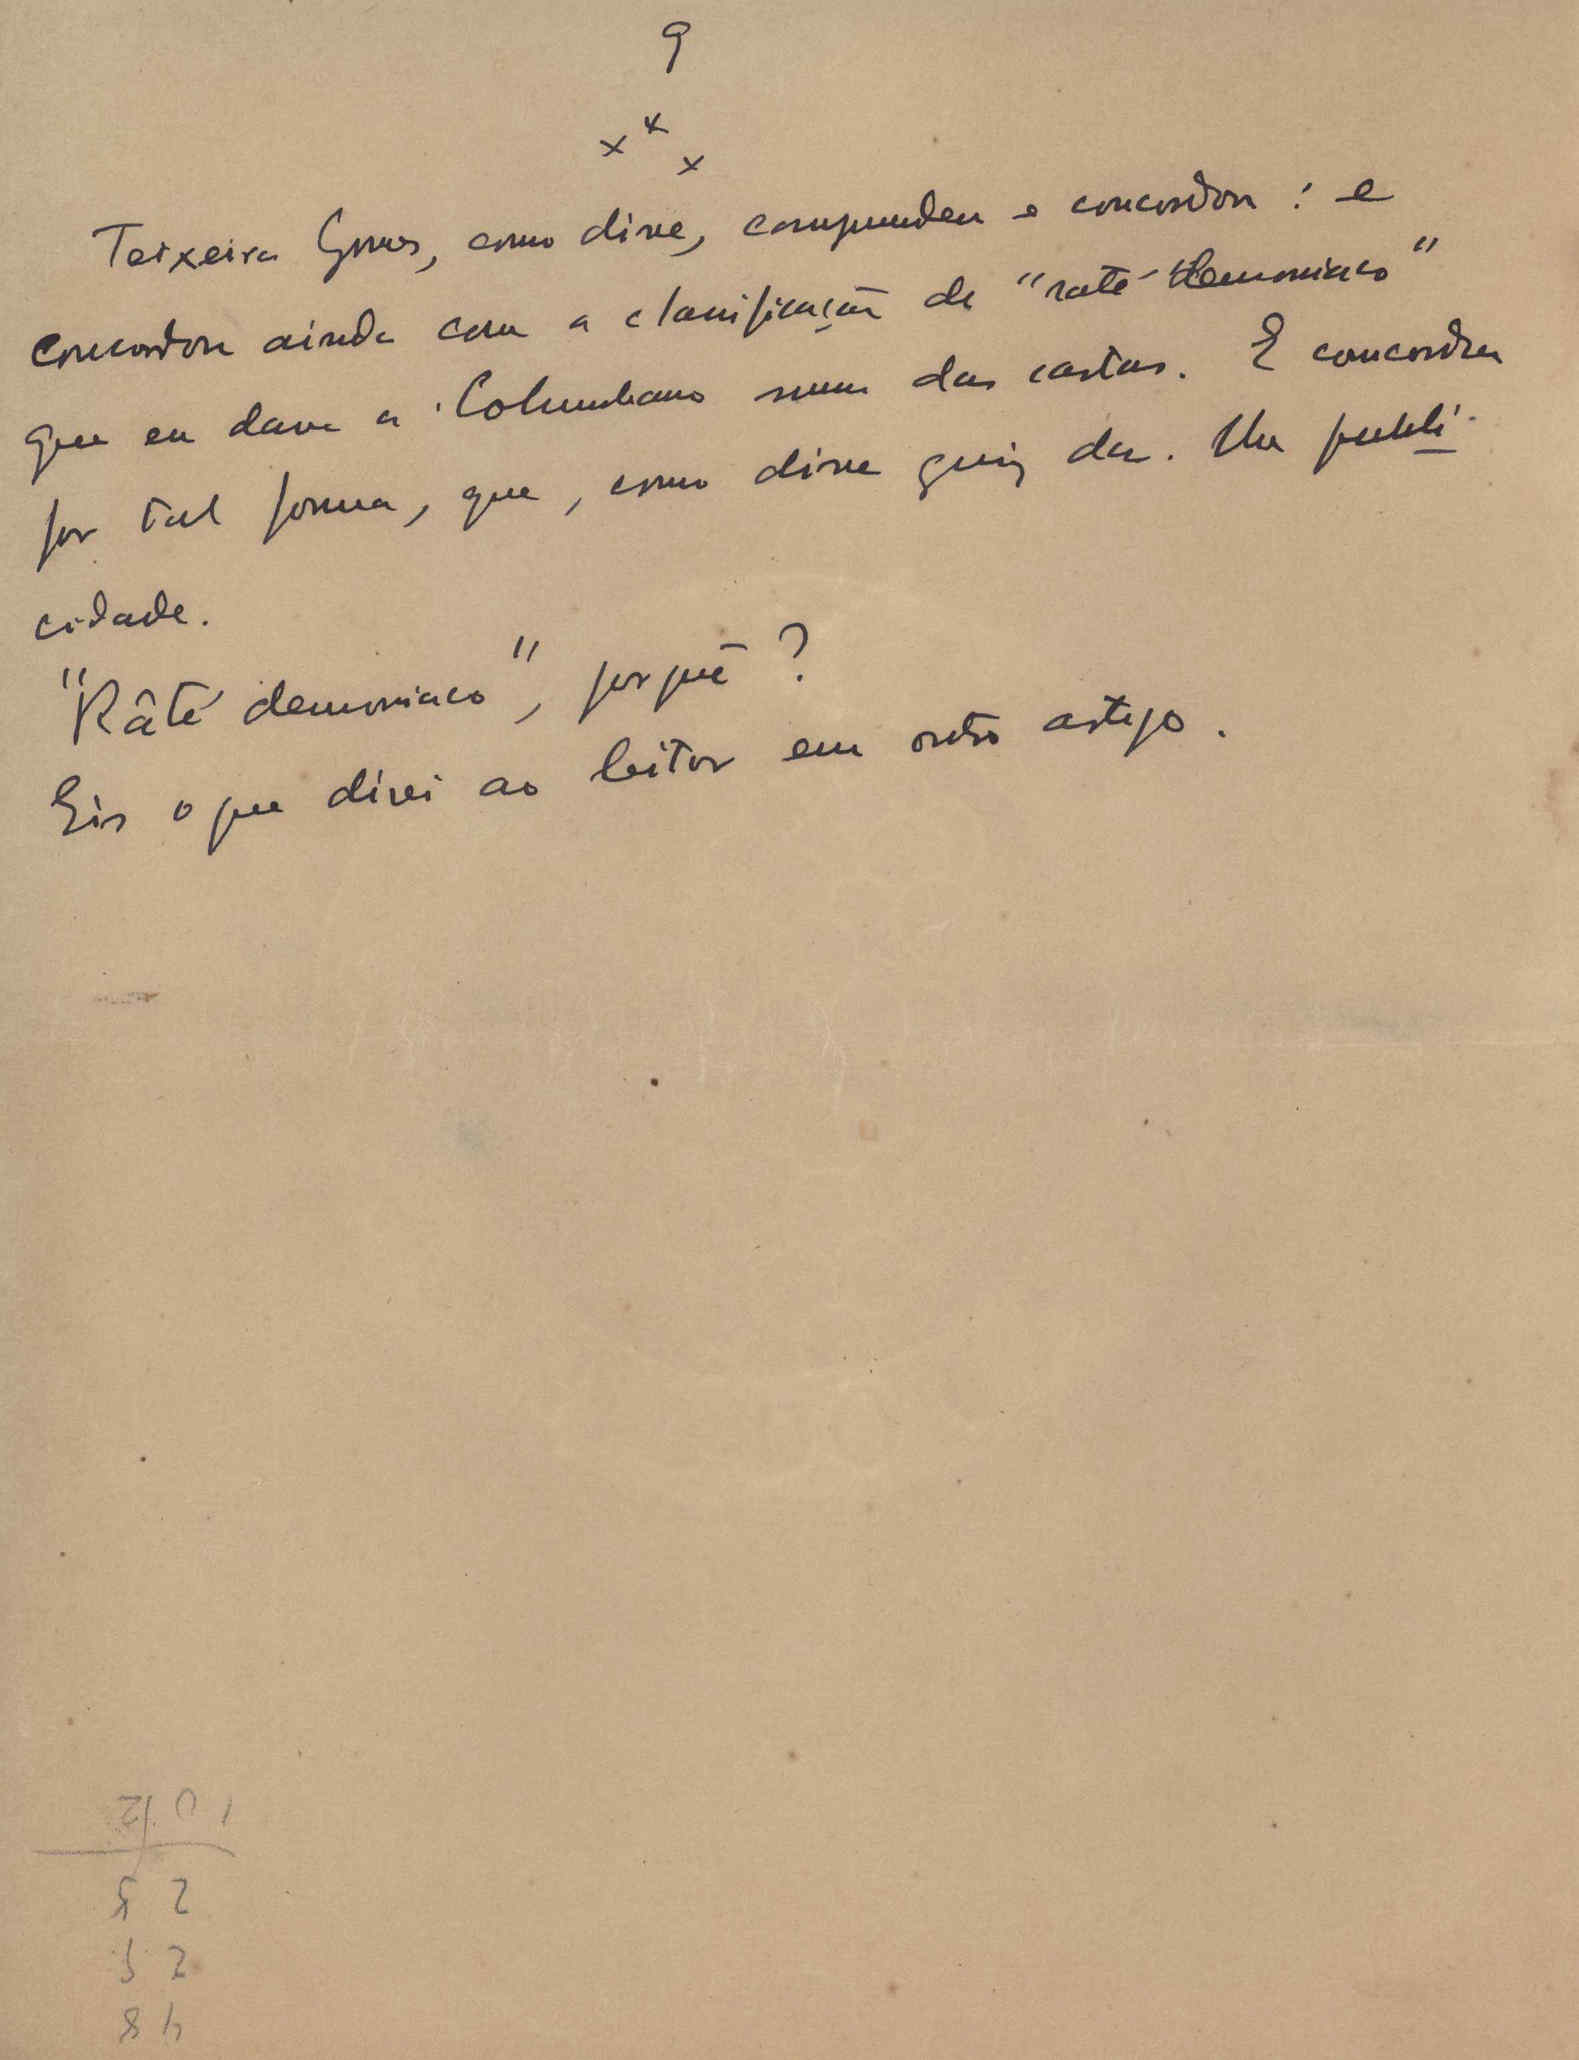 9
x x x
Teixeira Gomes, como disse, compreendeu e concordou: e
concordou ainda com a classificação de "raté demoniaco"
que eu dava a Columbano numa das cartas. E concordou
por tal forma, que, como disse quiz dar-lhe publi-
cidade.
"Râté demoniaco", porquê?
Eis o que direi ao leitor em outro artigo.
48
25
25